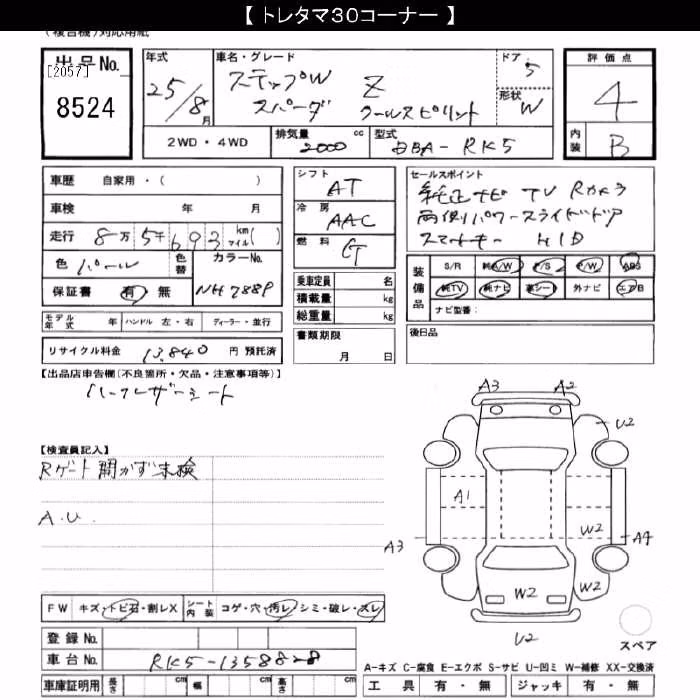 【 トレタマ30コーナー 】
(複合機)対応用紙
出品No.
[2057]
8524
年式
25/8月
車名・グレード
ステップW Z
スパーダ クールスピリット
ドア
5
形状
W
2WD・4WD
排気量 2000 cc
型式 DBA-RK5
評価点
4
内装
B
車歴 自家用・( )
車検 年 月
走行 8万5千693 km マイル( )
色 パール
色替
カラーNo.
NH788P
保証書 有 無
シフト AT
冷房 AAC
燃料
乗車定員 名
積載量 kg
総重量 kg
セールスポイント
純正ナビ TV Rカメラ
両側パワースライドドア
スマートキー HID
装備品
S/R 純A/W P/S P/W ABS
純TV 純ナビ 革シート 外ナビ エアB
ナビ型番:
モデル年式 年 ハンドル 左・右 ディーラー・並行
リサイクル料金 13,840 円 預託済
書類期限
月 日
後日品
【出品店申告欄(不良箇所・欠品・注意事項等)】
ハーフレザーシート
【検査員記入】
Rゲート開かず未検
A.U.
A3 A2
U2
A1
W2
A3
A4
W2 W2
U2
スペア
FW キズ・トビ石・割レX
シート内装 コゲ・穴・汚レ・シミ・破レ・スレ
登録No.
車台No. RK5-1358828
車庫証明用 長さ cm 幅 cm 高さ cm
A-キズ C-腐食 E-エクボ S-サビ U-凹ミ W-補修 XX-交換済
工具 有・無 ジャッキ 有・無